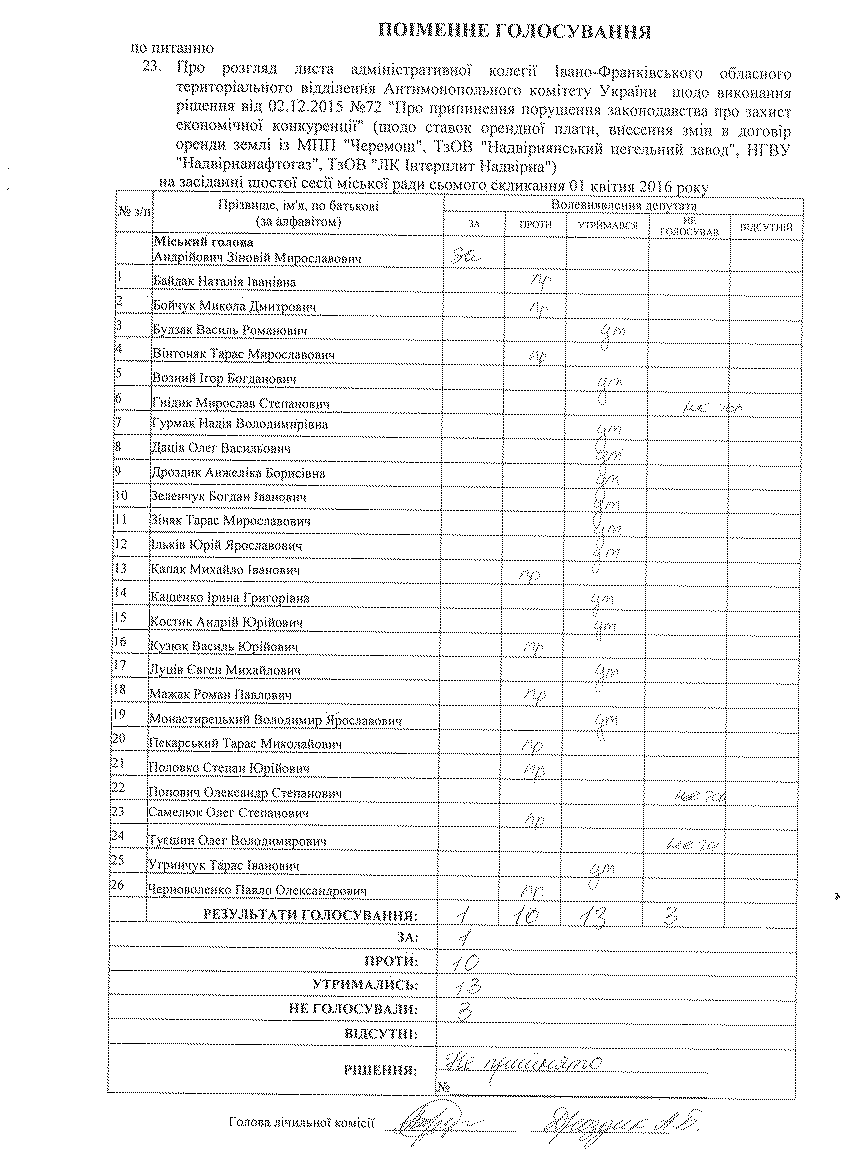 ПОІМЕННЕ ГОЛОСУВАННЯ
по питанню
23. Про розгляд листа адміністративної колегії Івано-Франківського обласного
територіального відділення Антимонопольного комітету України щодо виконання
рішення від 02.12.2015 №72 "Про припинення порушення законодавства про захист
економічної конкуренції" (щодо ставок орендної плати, внесення змін в договір
оренди землі із МПП "Черемош", ТзОВ "Надвірнянський цегельний завод", НГВУ
"Надвірнанафтогаз", ТзОВ "ЛК Інтерплит Надвірна")
на засіданні шостої сесії міської ради сьомого скликання 01 квітня 2016 року
№ з/п Прізвище, ім'я, по батькові (за алфавітом) Волевиявлення депутата
ЗА ПРОТИ УТРИМАВСЯ НЕ ГОЛОСУВАВ ВІДСУТНІЙ
Міський голова
Андрійович Зіновій Мирославович за
1 Байдак Наталія Іванівна пр
2 Бойчук Микола Дмитрович пр
3 Будзак Василь Романович ут
4 Вінтоняк Тарас Мирославович пр
5 Возний Ігор Богданович ут
6 Гнідик Мирослав Степанович не гол
7 Гурмак Надія Володимирівна ут
8 Даців Олег Васильович ут
9 Дроздик Анжеліка Борисівна ут
10 Зеленчук Богдан Іванович ут
11 Зіняк Тарас Мирославович ут
12 Ільків Юрій Ярославович ут
13 Капак Михайло Іванович пр
14 Кащенко Ірина Григоріана ут
15 Костик Андрій Юрійович ут
16 Кузюк Василь Юрійович пр
17 Луців Євген Михайлович ут
18 Мажак Роман Павлович пр
19 Монастирецький Володимир Ярославович ут
20 Пекарський Тарас Миколайович пр
21 Половко Степан Юрійович пр
22 Попович Олександр Степанович не гол
23 Самелюк Олег Степанович пр
24 Олег Володимирович не го
25 Утринчук Тарас Іванович ут
26 Черноволенко Павло Олександрович пр
РЕЗУЛЬТАТИ ГОЛОСУВАННЯ: 1 10 13 3
ЗА: 1
ПРОТИ: 10
УТРИМАЛИСЬ: 13
НЕ ГОЛОСУВАЛИ: 3
ВІДСУТНІ:
РІШЕННЯ: Не прийнято
№
Голова лічильної комісії Дроздик А.Б.